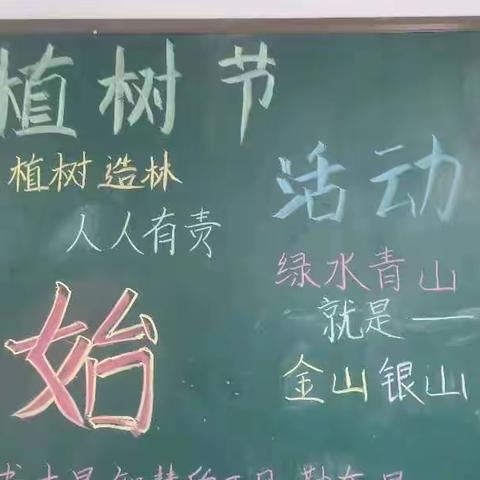 植树节
活动
植树造林
人人有责
绿水青山
就是——
金山银山
始